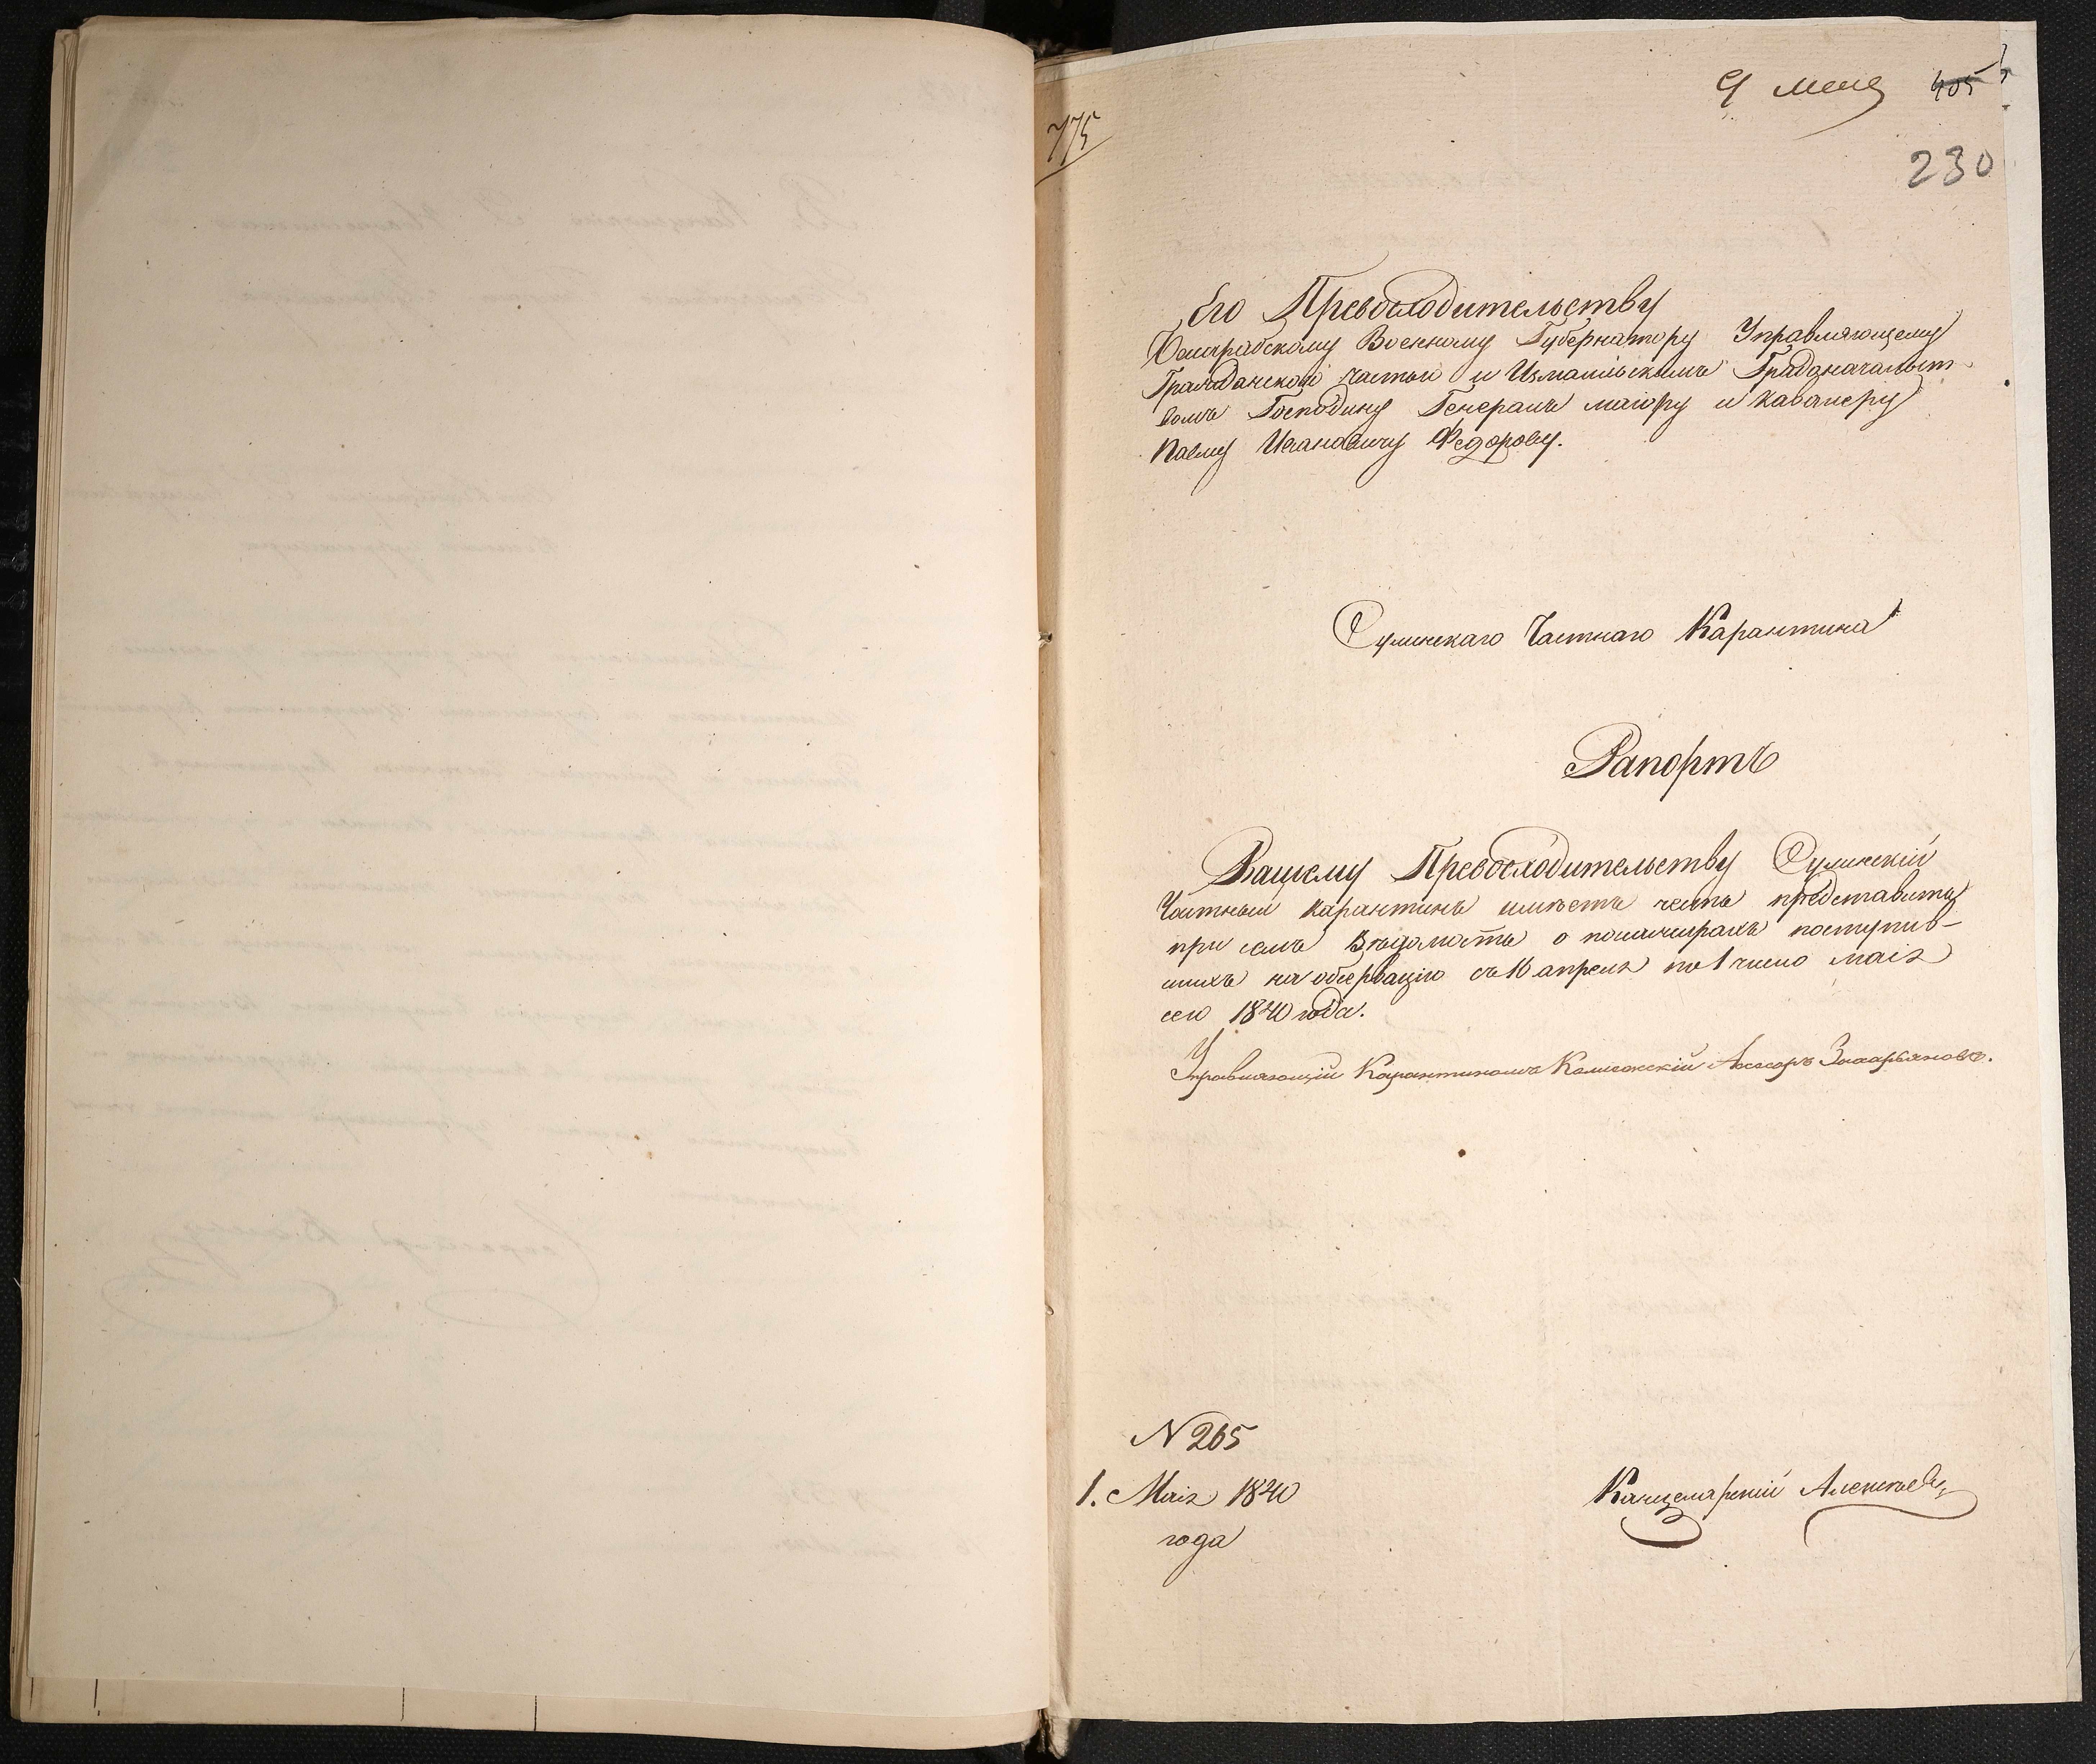 9 мая
405
775
230
Его Превосходительству
Бессарабскому Военному Губернатору Управляющему
Гражданской частью и Измаильскимъ Градоначальст-
вомъ Господину Генералъ маiору и кавалеру
Павлу Ивановичу Федорову.
Сулинскаго Частнаго Карантина
Рапортъ
Вашему Превосходительству Сулинскiй
Частный карантинъ имѣетъ честь представить
при семъ Вѣдомость о пассажирахъ поступив-
шихъ на обсервацiю съ 16 апреля по 1 число маiя
сего 1840 года.
Управляющiй Карантиномъ Коллежскiй Асессоръ Захарьяновъ.
N 265
1. Маiя 1840
года
Канцелярскiй Алексѣевъ